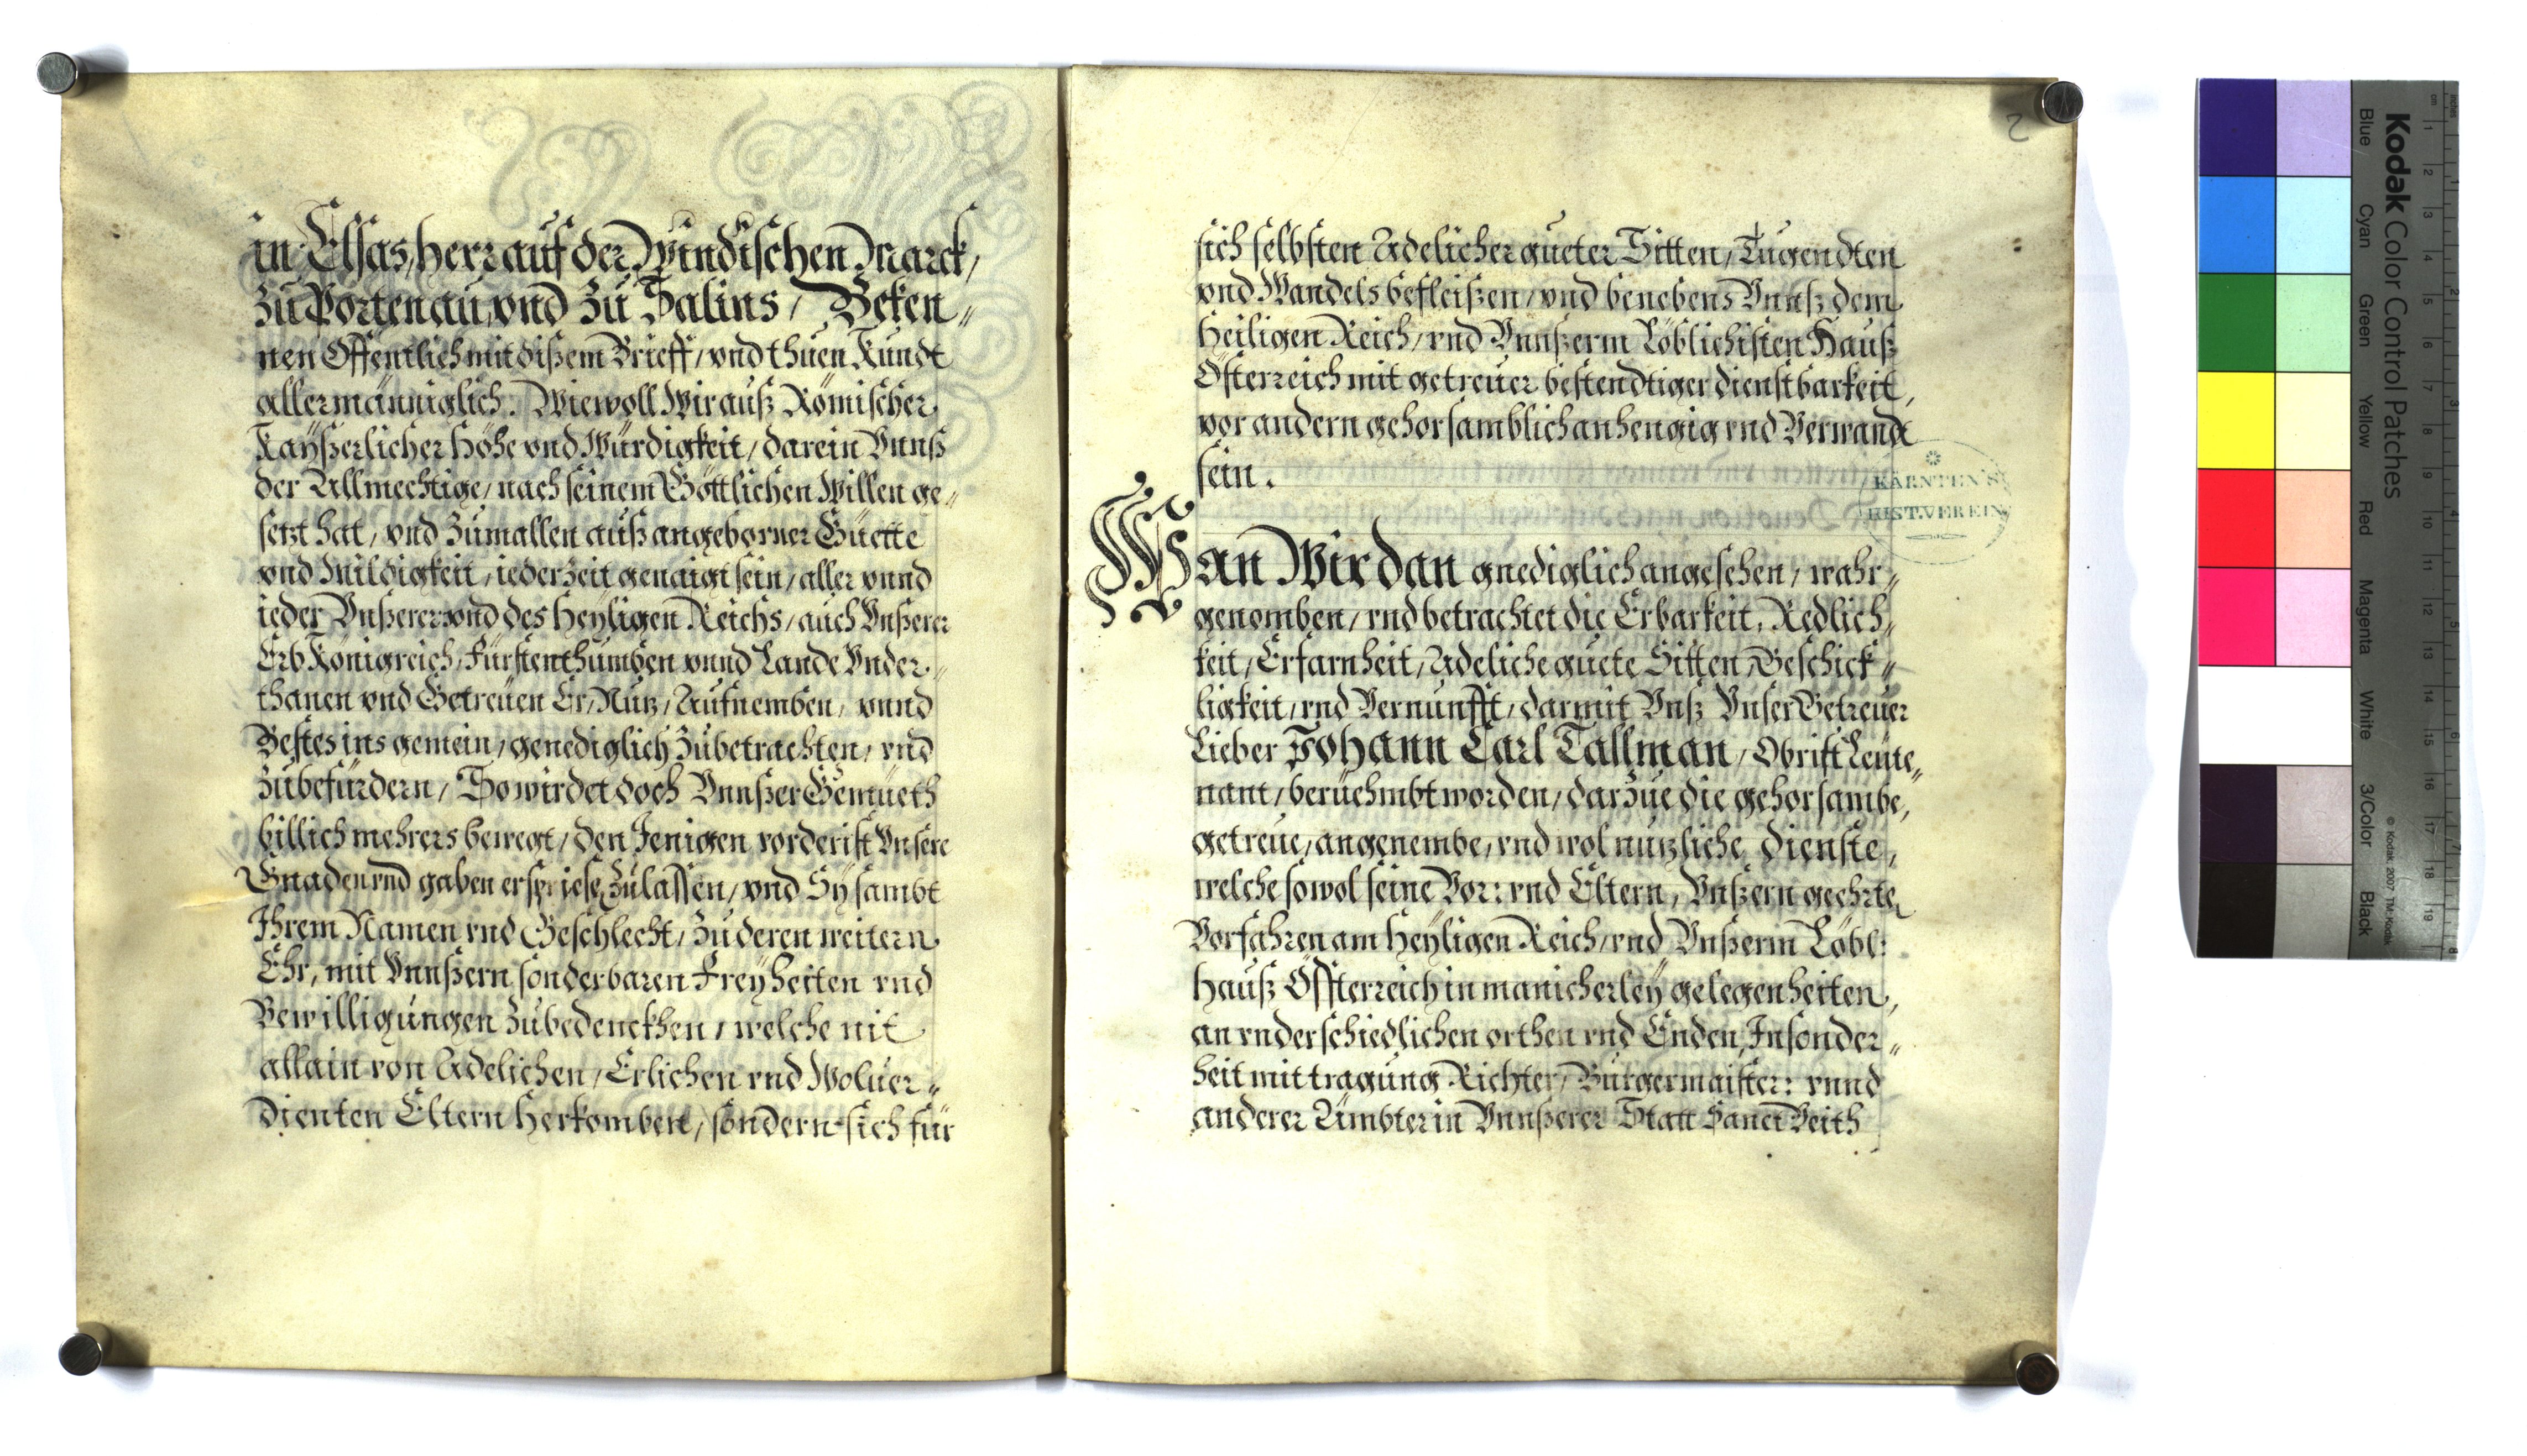 in Elsas, herr auf der Windischen Marck,
zu Portenau, vnd zu Salins, Beken„
nen Offentlich mit dißem Brieff, vnd thuen Kundt
allermänniglich. Wiewoll Wir auß Römischer
Kayßerlicher Höhe vnd Würdigkeit, darein Vnnß
der Allmechtige, nach seinem Göttlichen Willen ge„
sezt hat, vnd zumallen auß angeborner Güette
vnd Mildigkeit, iederzeit genaigt sein, aller vnnd
ieder Vnßerer vnd des Heyligen Reichs, auch Vnßerer
Erb Königreich, Fürstenthumben vnnd Lande Vnder„
thanen vnd Getreuen Er, Nuz, Aufnemben, vnnd
Bestes ins gemein, genediglich zubetrachten, vnd
zubefürdern, So wirdet doch Vnnßer Gemüeth
billich mehrers bewegt, den Jenigen vorderist Vnsere
Gnaden vnd gaben erspriesen zulassen, vnd Sy sambt
Ihrem Namen vnd Geschlecht, zu deren weitern
Ehr, mit Vnnßern sonderbaren Freyheiten vnd
Bewilligungen zubedenckhen, welche nit
allain von Adelichen, Erlichen vnd Woluer„
dienten Eltern herkomben, sondern sich für
2
sich selbsten Adelicher gueter Sitten, Tugendten
vnd Wandels befleißen, vnd benebens Vnnß dem
Heiligen Reich, vnd Vnnßerm Löblichisten Hauß
Österreich mit getreuer bestendtiger dienstbarkeit,
vor andern gehorsamblich anhengig vnd Verwandt
sein.
KÄRNTEN'S
HIST. VEREIN
Wan Wir dan gnediglich angesehen, wahr„
genomben, vnd betrachtet die Erbarkeit, Redlich„
keit, Erfarnheit, Adeliche guete Sitten, Geschick„
ligkeit, vnd Vernunfft, darmit Vnß Vnser Getreuer
Lieber Johann Carl Tallman, Obrist Leute„
nant, berüehmbt worden, darzue die gehorsambe,
getreue, angenembe, vnd wol nuzliche Dienste,
welche sowol seine Vor: vnd Eltern, Vnßern geehrten
Vorfahren am Heyligen Reich, vnd Vnßerm Löbl:
Hauß Össterreich in manicherley gelegenheiten,
an vnderschiedlichen orthen vnd Enden, Insonder„
heit mit tragung Richter, Burgermaister: vnnd
anderer Ämbter in Vnnßerer Statt Sanct Veith
Kodak Color Control Patches
© Kodak, 2007 TM: Kodak
Blue Cyan Green Yellow Red Magenta White 3/Color Black